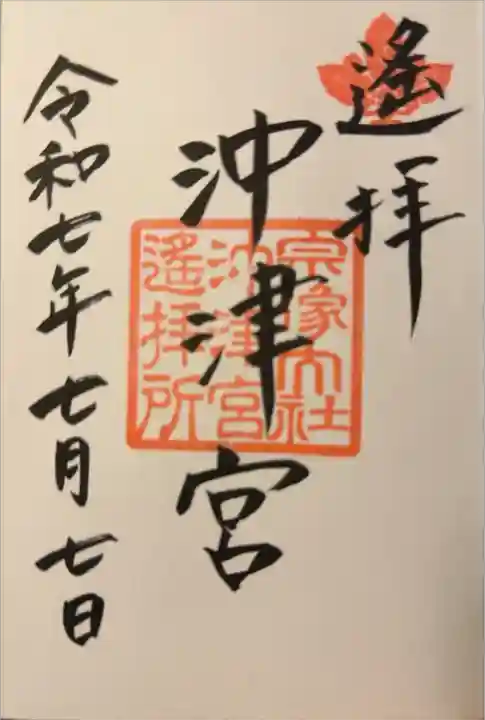 遙拝
沖津宮
宗像大社
沖津宮
遙拝所
令和七年七月七日